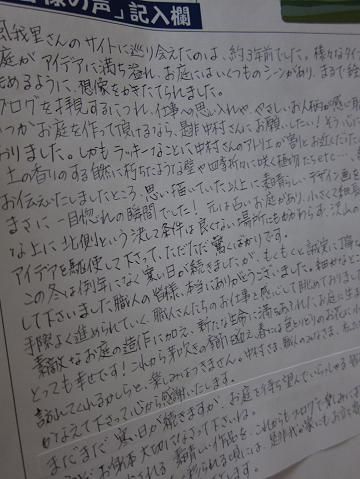 様の声」記入欄
風我里さんのサイトに巡り会えたのは、約3年前でした。様々なタイ
庭が アイデアに満ち溢れ、お庭にはいくつものシーンがあり、まるで絵
めるように、想像をかきたてられました。
ブログを拝見するにつれ、仕事への思い入れや、やさしいお人柄が感じ
いつかお庭を作って頂けるなら、是非中村さんにお願いしたい!そう心に
おりました。しかもラッキーなことに中村さんのアトリエが割とお近くだった
土の香りのする自然に朽ちたような壁や四季折々に咲く植物たちetc…
お伝えいたしましたところ、思い描いていた以上に素晴らしいデザイン画を
まさに一目惚れの瞬間でした! 元は白いお庭があり、小さくて細
な上に北側という決して条件は良くない場所にもかかわらず、沢山の
アイデアを駆使して下さって、ただただ驚くばかりです。
この冬は例年になく寒い日が続きましたが、もくもくと誠実に
して下さいました職人の皆様、本当にありがとうございました。細やかなと
手際よく進められていく、職人さんたちのお仕事と感心して眺めておりま
素敵なお庭の造作に加え、新たな生命に満ちあふれたお庭に
とっても幸せです!これから芽吹きの季節を迎え、春には色とりどりのお花に
訪れてくれるかしらと、楽しみはつきません。中村さま、職人のみなさま、
かなえて下さって心から感謝いたします。
まだまだ寒い日が続きますが、お庭を待ち望んでいらっしゃる
お身体大切になさって下さいね。
素晴しい作品を、これからもブログで楽しみに